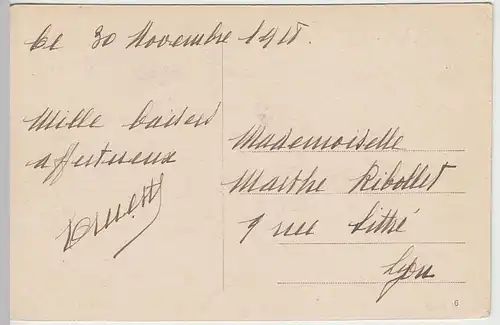 Le 30 Novembre 1918.
Mille baisers
affectueux
Ernest
Mademoiselle
Marthe Ribollet
9 rue Littré
Lyon
6